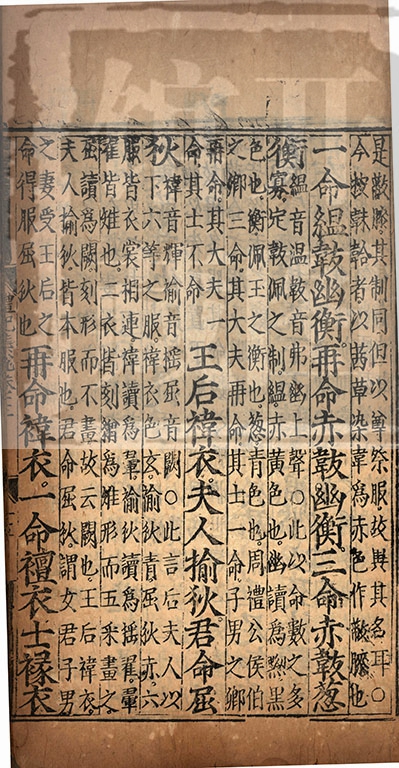 是蔽膝。其制同但以尊祭服。故異其名耳○
今按韎韐者以茜草染韋爲赤色作蔽膝也
一命縕韍幽衡。再命赤韍幽衡。三命赤韍葱
衡
縕音溫韍音弗幽上聲○此以命數之多
寡。定韍佩之制。縕赤黄色也。幽讀爲黝黑
色也。衡佩玉之衡也。葱青色也。周禮公侯伯
之卿三命。其大夫再命。其士一命。子男之卿
再命。其大夫一
命其士不命
王后褘衣。夫人揄狄。君命屈
狄
褘音輝揄音摇屈音闕○此言后夫人以
下六等之服。褘衣色玄。揄狄青。屈狄赤。六
服皆衣裳相連褘讀爲翬揄狄讀爲摇翟。翬
翟皆雉也。二衣皆刻繒爲雉形而五采畫之。
屈讀爲闕刻形而不畫故云闕也。王后褘衣。
夫人揄狄。皆本服也。君命屈狄謂女君子男
之妻受王后之
命得服屈狄也
再命褘衣。一命襢衣士褖衣